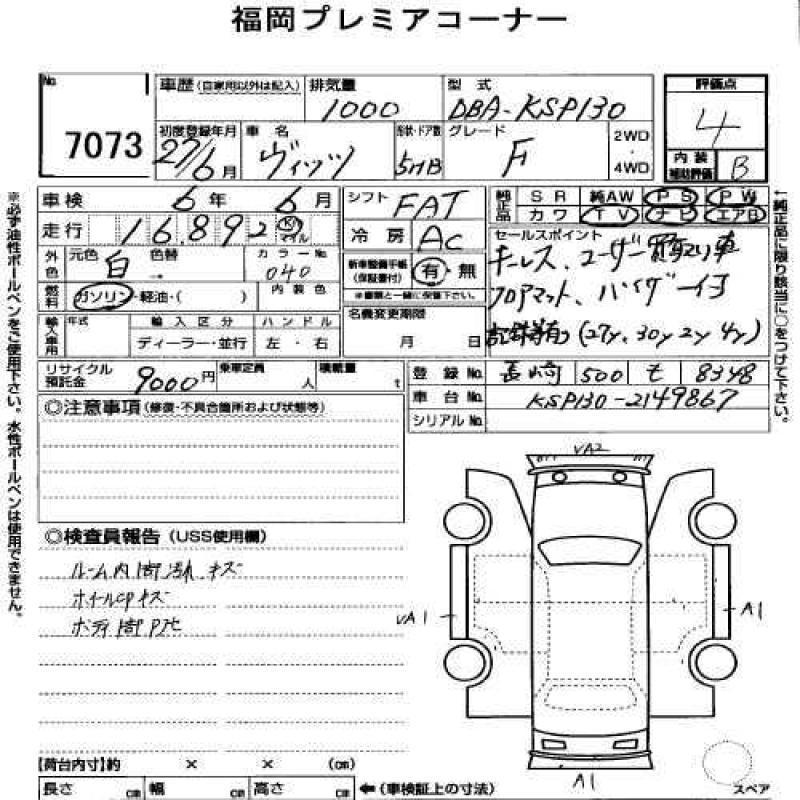 福岡プレミアコーナー
No. 7073
車歴(自家用以外は記入) 排気量 1000 型式 DBA-KSP130
初度登録年月 27/6月 車名 ヴィッツ 形状・ドア数 5HB グレード F 2WD・4WD
評価点 4
内装補助評価 B
車検 6年 6月 シフト FAT
純正品 SR 純AW PS PW
カワ TV ナビ エアB
走行 16,892 Km マイル
冷房 AC
外色 元色 白 色替 カラーNo. 040
新車整備手帳(保証書付) 有・無
※書類と一緒に保管下さい。
燃料 ガソリン・軽油・( ) 内装色
セールスポイント
キーレス、ユーザー買取り車
フロアマット、バイザー付
記録簿有り(27y, 30y 2y 4y)
名義変更期限 月 日
輸入車用 年式 輸入区分 ハンドル
ディーラー・並行 左・右
リサイクル預託金 9000円 乗車定員 人 積載量 t
登録No. 長崎 500 せ 8348
車台No. KSP130-2149867
シリアルNo.
◎注意事項(修復・不具合箇所および状態等)
◎検査員報告(USS使用欄)
ルーム内 キズ
ホイールCPキズ
ボディ
VA2
VA1
A1
A1
スペア
【荷台内寸】約 × × (cm)
長さ cm 幅 cm 高さ cm ←(車検証上の寸法)
※必ず油性ボールペンをご使用下さい。水性ボールペンは使用できません。
←純正品に限り該当に○をつけて下さい。